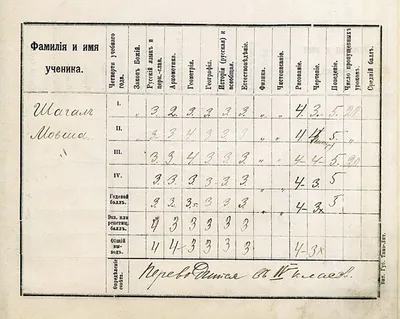 Фамилія и имя
ученика.
Четверти учебного года.
Законъ Божій.
Русскій языкъ и церк.-слав.
Ариѳметика.
Геометрія.
Географія.
Исторія (русская) и всеобщая.
Естествовѣдѣніе.
Физика.
Чистописаніе.
Рисованіе.
Черченіе.
Поведеніе.
Число пропущенныхъ уроковъ.
Средній балъ.
Шагалъ
Мовша
I. 3 2 3 3 3 3 4 3 5
II. 3 3 4 3 3 3 4 4 5
III. 3 3 4 3 3 3 4 4 5
IV. 3 3 3 3 3 3 4 3 5
Годовой балъ. 3 2 3 3 3 3 4 3 5
балъ. 4 3 3 3 3 3
Общій выводъ. 4 4 3 3 3 3 4 3
Переводится въ IV классъ.
Вит. Губ. Тип.-Лит.